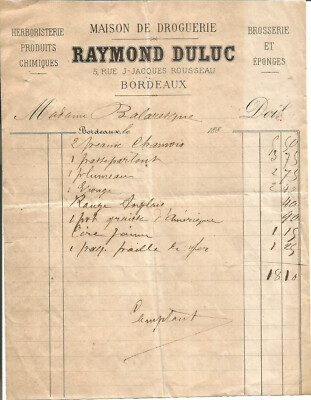 MAISON DE DROGUERIE
HERBORISTERIE
PRODUITS
CHIMIQUES
BROSSERIE
ET
ÉPONGES
RAYMOND DULUC
5, RUE J-JACQUES ROUSSEAU
BORDEAUX
Madame Balaresque Doit
Bordeaux, le 188
2 peaux Chamois
1 passepartout 3 75
1 plumeau 2 75
1 2 40
Rouge Anglais 40
1 pot graisse d'Amérique 40
Cire jaune 1 15
1 paq. paille de fer 1 25
18 10
Comptant